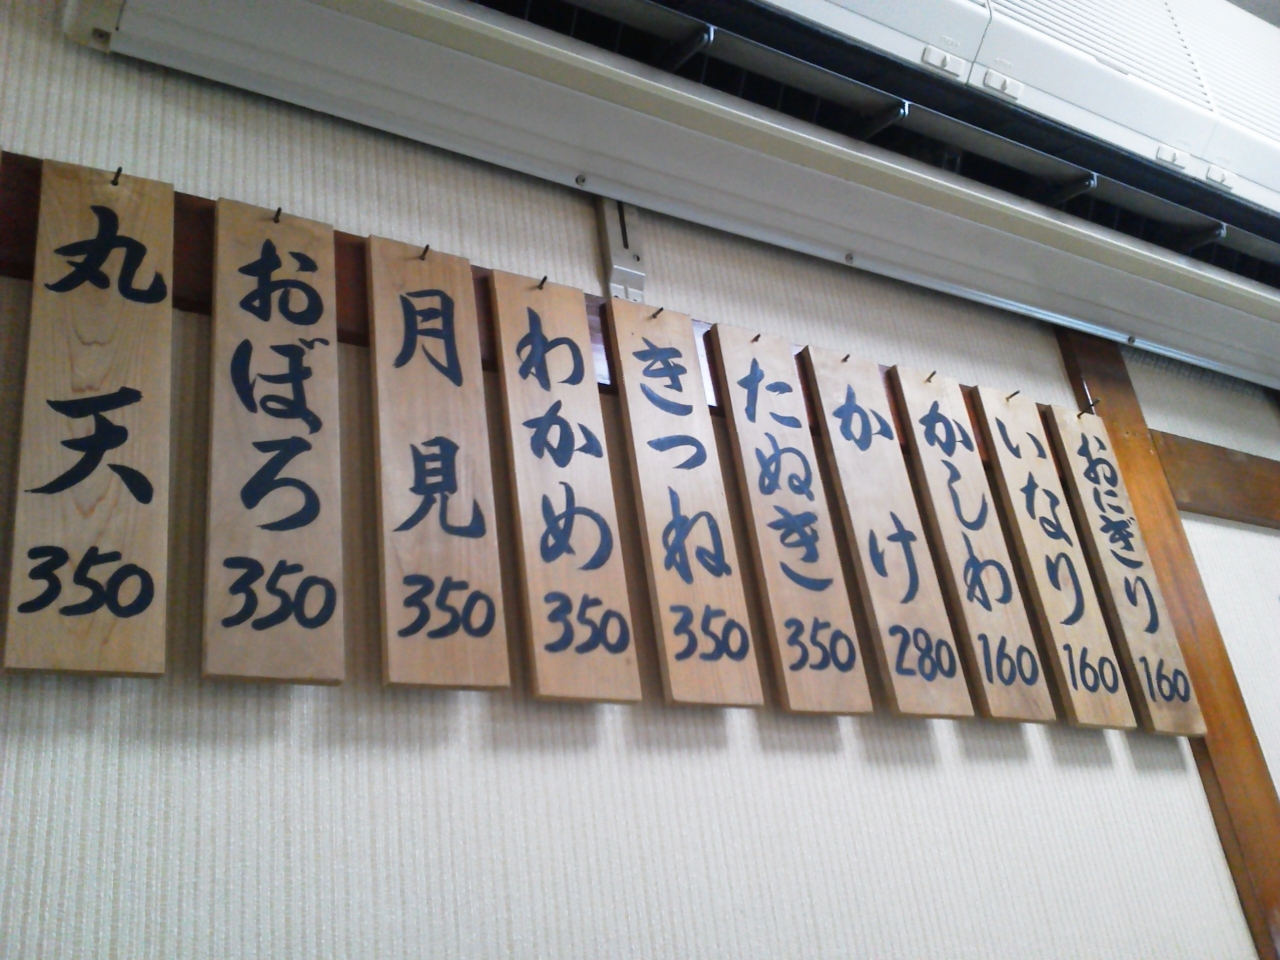 おにぎり 160
いなり 160
かしわ 160
かけ 280
たぬき 350
きつね 350
わかめ 350
月見 350
おぼろ 350
丸天 350